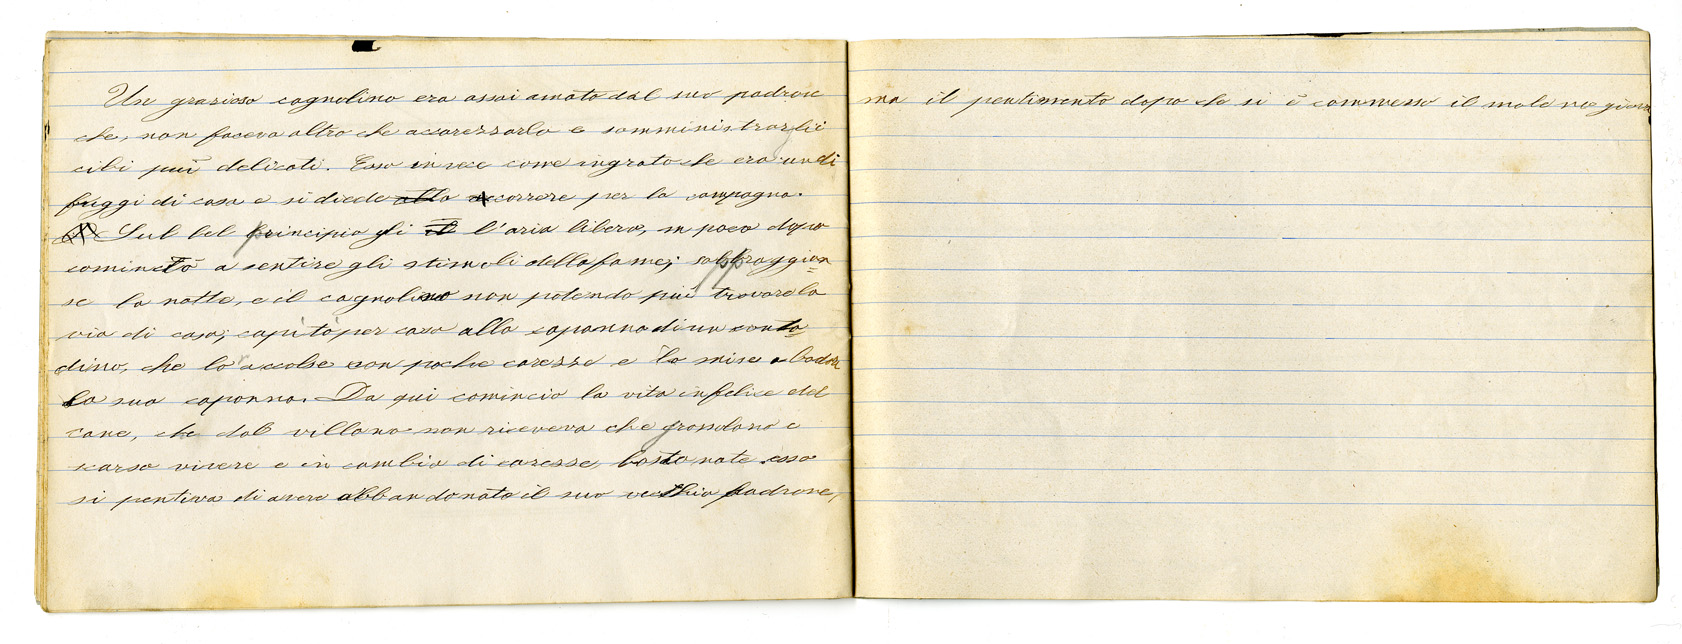 Un grazioso cagnolino era assai amato dal suo padrone
che, non faceva altro che accarezzarlo e somministrargli
cibi più delicati. Esso invece come ingrato che era un di
fuggi di casa e si diede alla a correre per la campagna.
Sul bel principio gli il l'aria libera, m poco dopo
cominciò a sentire gli stimoli della fame; sopraggiun
se la notte, e il cagnolino non potendo più trovare la
via di casa; capitò per caso alla capanna di un conta
dino, che lo accolse con poche carezze e lo mise a badare
la sua capanna. Da qui cominciò la vita infelice del
cane, che dal villano non riceveva che grossolano e
scarso vivere e in cambio di caresse, bastonate esso
si pentiva di avere abbandonato il suo vecchio padrone,
ma il pentimento dopo che si è commesso il male non giova